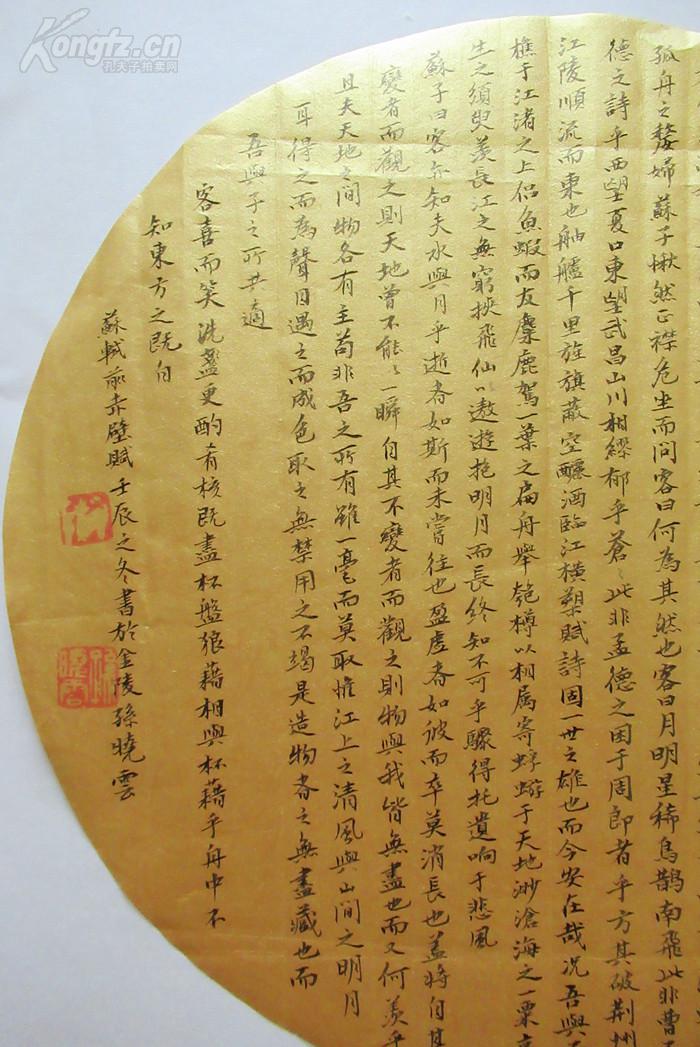 孤舟之嫠婦蘇子愀然正襟危坐而問客曰何為其然也客曰月明星稀烏鵲南飛此非曹孟
德之詩乎西望夏口東望武昌山川相繆郁乎蒼〻此非孟德之困于周郎者乎方其破荆州
江陵順流而東也舳艫千里旌旗蔽空釃酒臨江橫槊賦詩固一世之雄也而今安在哉況吾與子
樵于江渚之上侣魚蝦而友麋鹿駕一葉之扁舟舉匏樽以相属寄蜉蝣于天地渺滄海之一粟哀
生之須臾羨長江之無窮挾飛仙以遨遊抱明月而長終知不可乎驟得托遺响于悲風
蘇子曰客亦知夫水與月乎逝者如斯而未嘗往也盈虛者如彼而卒莫消長也蓋將自其
變者而觀之則天地曾不能〻一瞬自其不變者而觀之則物與我皆無盡也而又何羨乎
且夫天地之間物各有主苟非吾之所有雖一毫而莫取惟江上之清風與山間之明月
耳得之而為聲目遇之而成色取之無禁用之不竭是造物者之無盡藏也而
吾與子之所共適
客喜而笑洗盞更酌肴核既盡杯盤狼藉相與枕藉乎舟中不
知東方之既白
蘇軾前赤壁賦壬辰之冬書於金陵孫曉雲
Kongfz.cn
孔夫子拍卖网